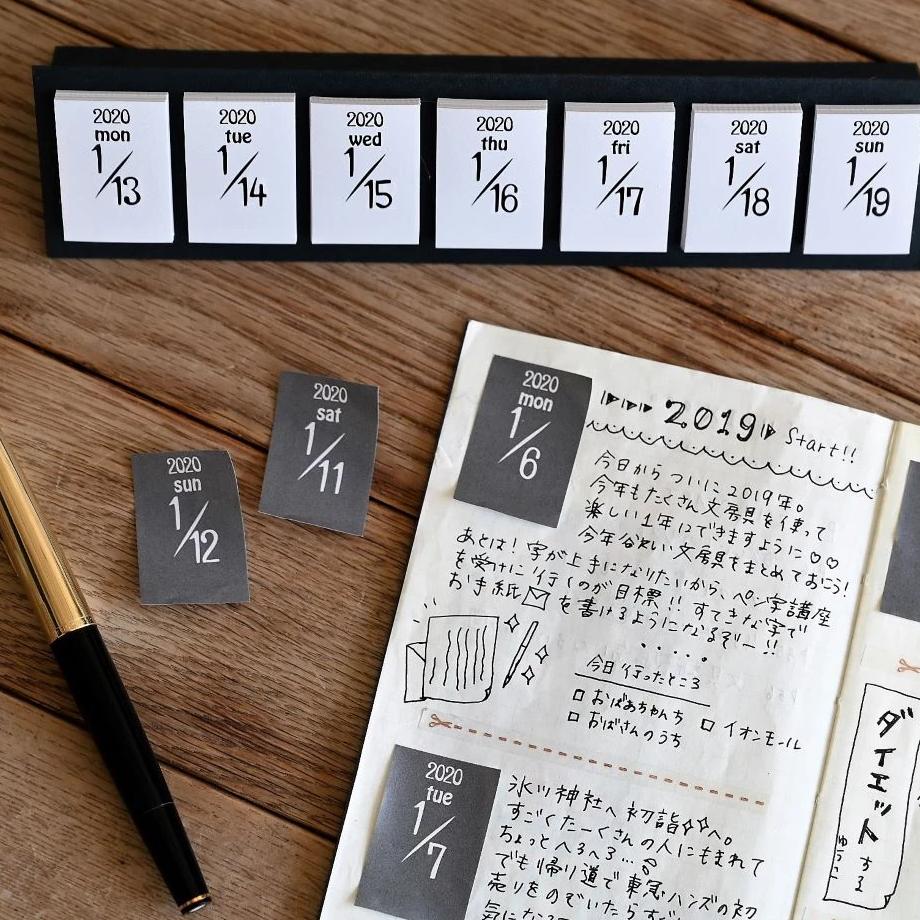 2020
mon
1/13
2020
tue
1/14
2020
wed
1/15
2020
thu
1/16
2020
fri
1/17
2020
sat
1/18
2020
sun
1/19
2020
sat
1/11
2020
sun
1/12
2020
mon
1/6
2019 Start!!
今日からついに2019年。
今年もたくさん文房具を使って
楽しい1年にできますように♡♡
今年欲しい文房具をまとめておこう!
あとは!字が上手になりたいから、ペン字講座
を受けに行くのが目標!!すてきな字で
お手紙を書けるようになるぞー!!
今日行ったところ
□おばあちゃんち □イオンモール
□おばさんのうち
2020
tue
1/7
氷川神社へ初詣へ。
すごくたーくさんの人にもまれて
ちょっとへろへろ…
でも帰り道で東急ハンズの初
売りをのぞいたらすご
気になる
ダイエットする